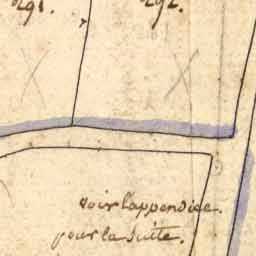 291. 292.
voir l'appendice.
pour la suite.